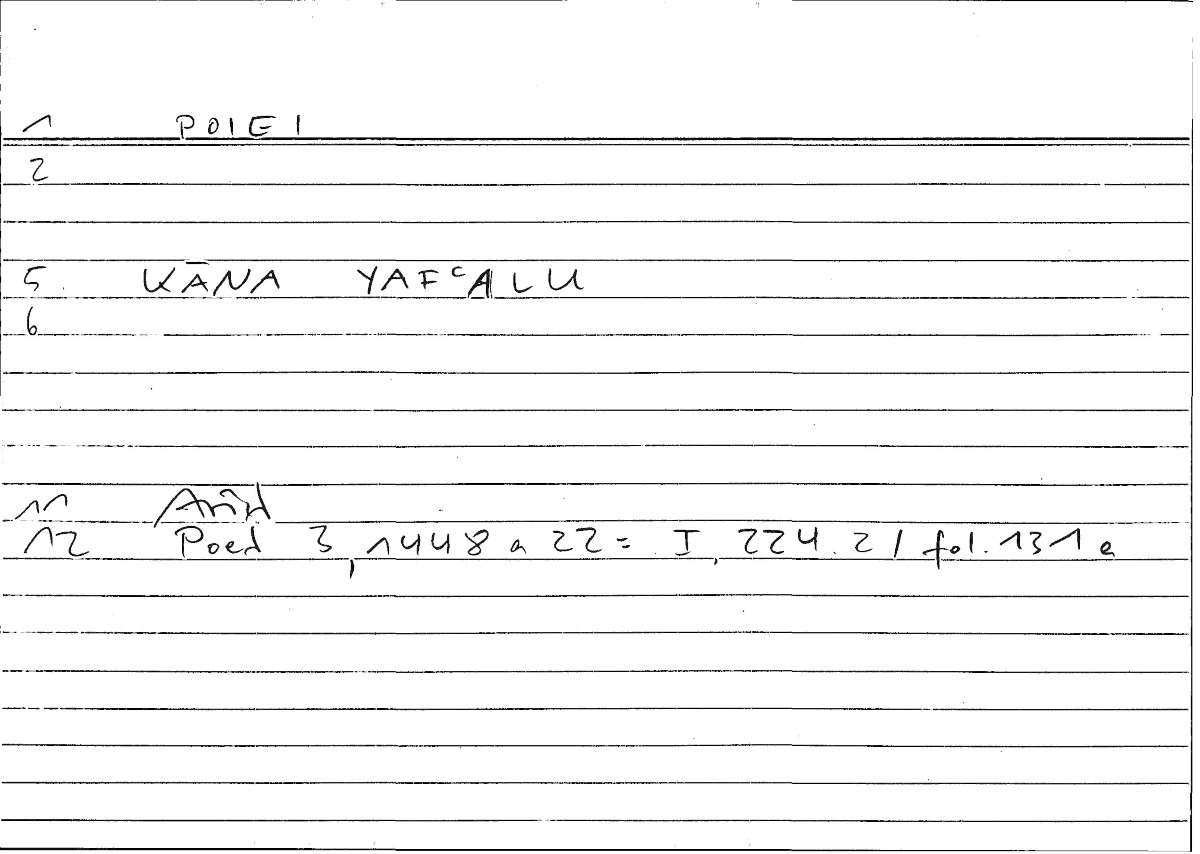 1 POIEI
2
5. KĀNA YAFᶜALU
6
11 Arist
12 Poet 3, 1448 a 22 = I, 224.2 / fol. 131 a